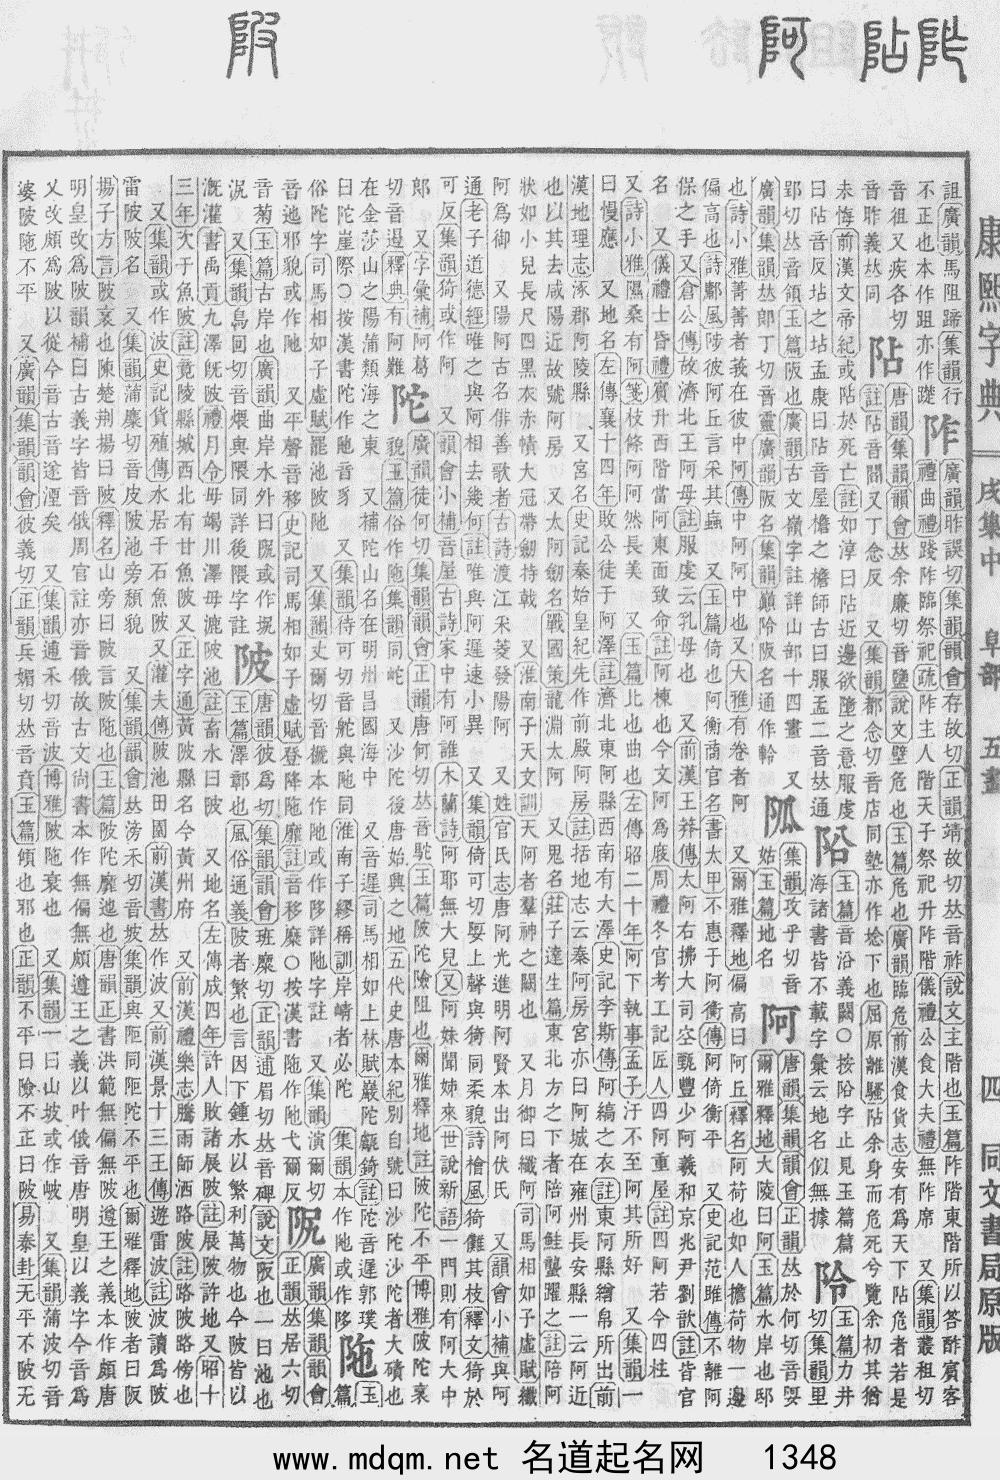 康熙字典 戌集中 阜部 五畫 四 同文書局原版
阼
阽
阿
陂
詛廣韻馬阻蹄集韻行
不正也本作跙亦作蹝
阼
廣韻昨誤切集韻韻會存故切正韻靖故切𠀤音祚說文主階也玉篇阼階東階所以答酢賓客
禮曲禮踐阼臨祭祀疏阼主人階天子祭祀升阼階儀禮公食大夫禮無阼席 又集韻叢租切
音祖又疾各切
音昨義𠀤同
阽
唐韻集韻韻會𠀤余廉切音鹽說文壁危也玉篇危也廣韻臨危前漢食貨志安有爲天下阽危者若是
註阽音閻又丁念反 又集韻都念切音店同墊亦作埝下也屈原離騷阽余身而危死兮覽余初其猶
未悔前漢文帝紀或阽於死亡註如淳曰阽近邊欲墮之意服虔
曰阽音反坫之坫孟康曰阽音屋檐之檐師古曰服孟二音𠀤通
玉篇音沿義闕○按 字止見玉篇篇
海諸書皆不載字彙云地名似無據
阾
玉篇力井
切集韻里
郢切𠀤音領玉篇阪也廣韻古文嶺字註詳山部十四畫 又
廣韻集韻𠀤郎丁切音靈廣韻阪名集韻巔阾阪名通作軨
集韻攻乎切音
姑玉篇地名
阿
唐韻集韻韻會正韻𠀤於何切音娿
爾雅釋地大陵曰阿玉篇水岸也邸
也詩小雅菁菁者莪在彼中阿傳中阿阿中也又大雅有卷者阿 又爾雅釋地偏高曰阿丘釋名阿荷也如人擔荷物一邊
偏高也詩鄘風陟彼阿丘言采其蝱 又玉篇倚也阿衡商官名書太甲不惠于阿衡傳阿倚衡平 又史記范雎傳不離阿
保之手又倉公傳故濟北王阿母註服虔云乳母也 又前漢王莽傳太阿右拂大司空甄豐少阿羲和京兆尹劉歆註皆官
名 又儀禮士昏禮賓升西階當阿東面致命註阿棟也今文阿爲庪周禮冬官考工記匠人四阿重屋註四阿若今四柱
又詩小雅隰桑有阿箋枝條阿阿然長美 又玉篇北也曲也左傳昭二十年阿下執事孟子汙不至阿其所好 又集韻一
曰慢應 又地名左傳襄十四年敗公徒于阿澤註濟北東阿縣西南有大澤史記李斯傳阿縞之衣註東阿縣繒帛所出前
漢地理志涿郡阿陵縣 又宮名史記秦始皇紀先作前殿阿房註括地志云秦阿房宮亦曰阿城在雍州長安縣一云阿近
也以其去咸陽近故號阿房 又太阿劒名戰國策龍淵太阿 又鬼名莊子達生篇東北方之下者陪阿鮭蠪躍之註陪阿
狀如小兒長尺四黑衣赤幘大冠帶劒持戟 又淮南子天文訓天阿者羣神之闕也 又月御曰纖阿司馬相如子虛賦纖
阿爲御 又陽阿古名俳善歌者古詩渡江采菱發陽阿 又姓官氏志唐有阿光進明阿賢本出阿伏氏 又韻會小補與阿
通老子道德經唯之與阿相去幾何註唯與阿遲速小異 又集韻倚可切娿上聲與猗同柔貌詩檜風猗儺其枝釋文猗於
可反集韻猗或作阿 又韻會小補音屋古詩家中有阿誰木蘭詩阿耶無大兒又阿妹聞姊來世說新語一門則有阿大中
郎 又字彙補阿葛
切音遏釋典有阿難
陀
廣韻徒何切集韻韻會正韻唐何切𠀤音駝玉篇陂陀險阻也爾雅釋地註陂陀不平博雅陂陀衺
貌玉篇俗作陁集韻同岮 又沙陀後唐始興之地五代史唐本紀別自號曰沙陀沙陀者大磧也
在金莎山之陽蒲類海之東 又補陀山名在明州昌國海中 又音遲司馬相如上林賦巖陀甗錡註陀音遲郭璞
曰陀崖際○按漢書陀作阤音豸 又集韻待可切音舵與阤同淮南子繆稱訓岸崝者必陀 集韻本作阤或作陊
陁
玉
篇
俗陀字司馬相如子虛賦罷池陂陁 又集韻丈爾切音搋本作阤或作陊詳阤字註 又集韻演爾切
音迤邪貌或作阤 又平聲音移史記司馬相如子虛賦登降陁靡註音移糜○按漢書陁作阤弋爾反
廣韻集韻韻會
正韻𠀤居六切
音菊玉篇古岸也廣韻曲岸水外曰阸或作坭
况 又集韻烏回切音煨與隈同詳後隈字註
陂
唐韻彼爲切集韻韻會班糜切正韻逋眉切𠀤音碑說文阪也一曰池也
玉篇澤鄣也風俗通義陂者繁也言因下鍾水以繁利萬物也今陂皆以
漑灌書禹貢九澤旣陂禮月令毋竭川澤毋漉陂池註畜水曰陂 又地名左傳成四年許人敗諸展陂註展陂許地又昭十
三年次于魚陂註竟陵縣城西北有甘魚陂又正字通黃陂縣名今黃州府 又前漢禮樂志騰雨師洒路陂註路陂路傍也
又集韻或作波史記貨殖傳水居千石魚陂又灌夫傳陂池田園前漢書𠀤作波又前漢景十三王傳遊雷波註波讀爲陂
雷陂陂名 又集韻蒲糜切音皮陂池旁頽貌 又集韻韻會𠀤滂禾切音坡集韻與陁同陁陀不平也爾雅釋地陂者曰阪
揚子方言陂衺也陳楚荆揚曰陂釋名山旁曰陂言陂陁也玉篇陂陀靡迆也唐韻正書洪範無偏無陂遵王之義本作頗唐
明皇改爲陂韻補曰古義字皆音俄周官註亦音俄故古文尚書本作無偏無頗遵王之義以叶俄音唐明皇以義字今音爲
乂改頗爲陂以從今音古音遂湮矣 又集韻逋禾切音波博雅陂陁衰也 又集韻一曰山坡或作岥 又集韻蒲波切音
婆陂陁不平 又廣韻集韻韻會彼義切正韻兵媚切𠀤音賁玉篇傾也邪也正韻不平曰險不正曰陂易泰卦无平不陂无
www.mdqm.net 名道起名网 1348